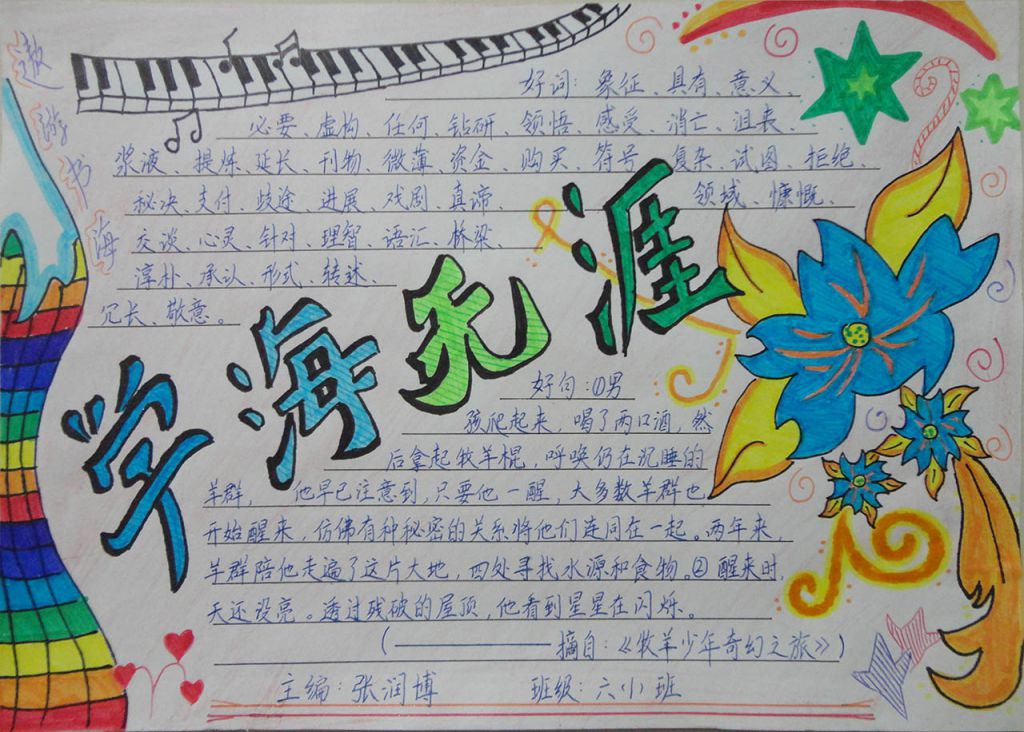 遨游书海
好词：象征、具有、意义、
必要、虚构、任何、钻研、领悟、感受、消亡、沮丧、
浆液、提炼、延长、刊物、微薄、资金、购买、符号、复杂、试图、拒绝、
秘决、支付、歧途、进展、戏剧、真谛、领域、慷慨、
交谈、心灵、针对、理智、语汇、桥梁、
淳朴、承认、形式、转述、
冗长、敬意。
学海无涯
好句：①男
孩爬起来，喝了两口酒，然
后拿起牧羊棍，呼唤仍在沉睡的
羊群，他早已注意到，只要他一醒，大多数羊群也
开始醒来，仿佛有种秘密的关系将他们连同在一起。两年来，
羊群陪他走遍了这片大地，四处寻找水源和食物。②醒来时，
天还没亮。透过残破的屋顶，他看到星星在闪烁。
(————摘自：《牧羊少年奇幻之旅》)
主编：张润博 班级：六(小)班